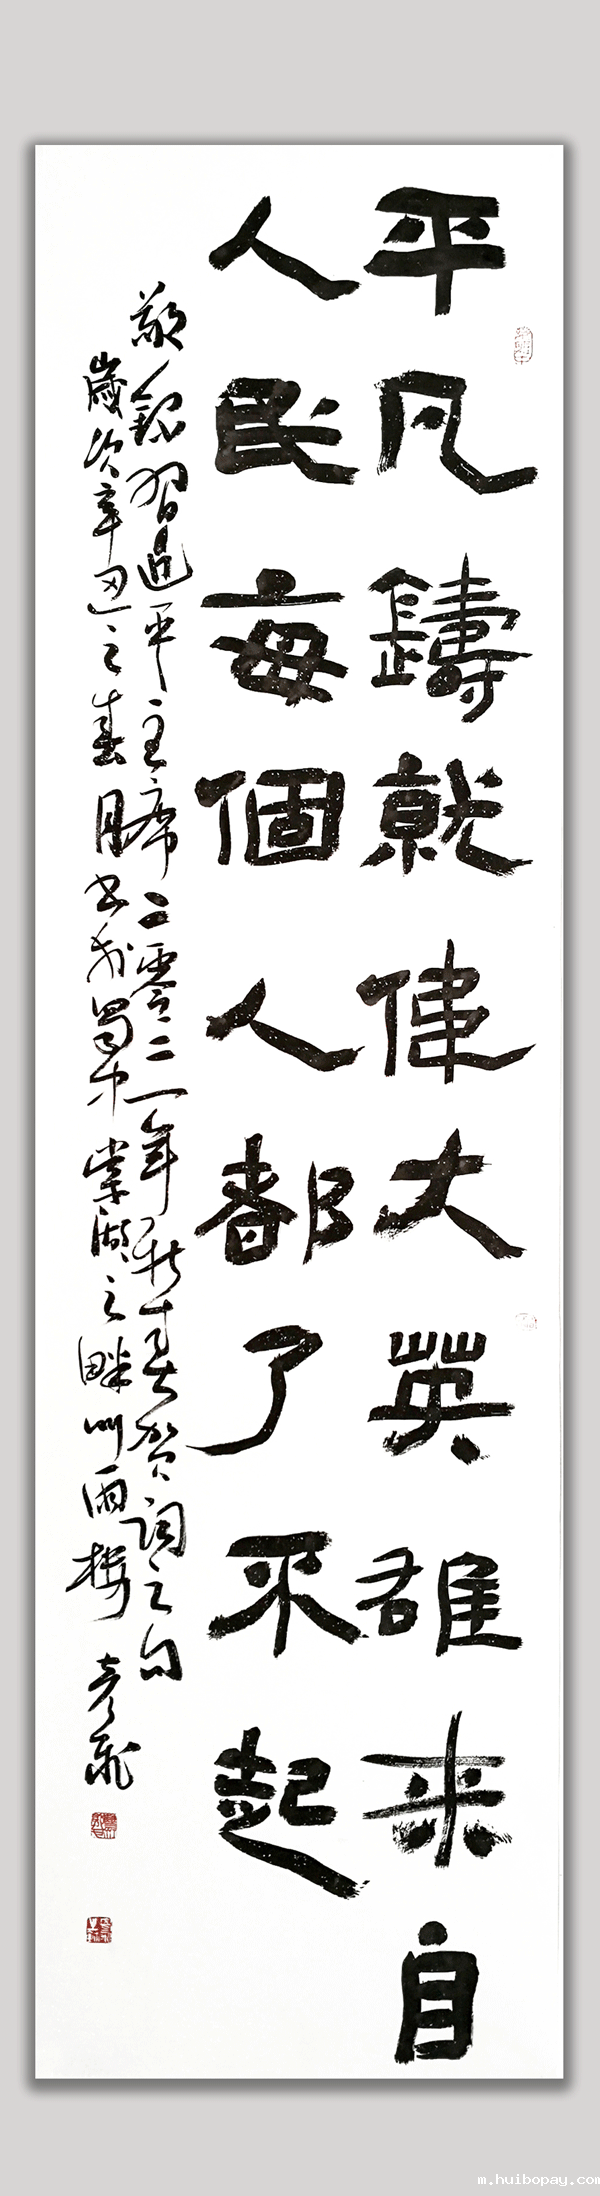 平凡鑄就偉大英雄来自
人民每個人都了不起
敬録習近平主席二零二一年新春贺詞之句
歲次辛丑之春月书於蜀中棠湖之畔听雨楼 彦飛
m.huibopay.com